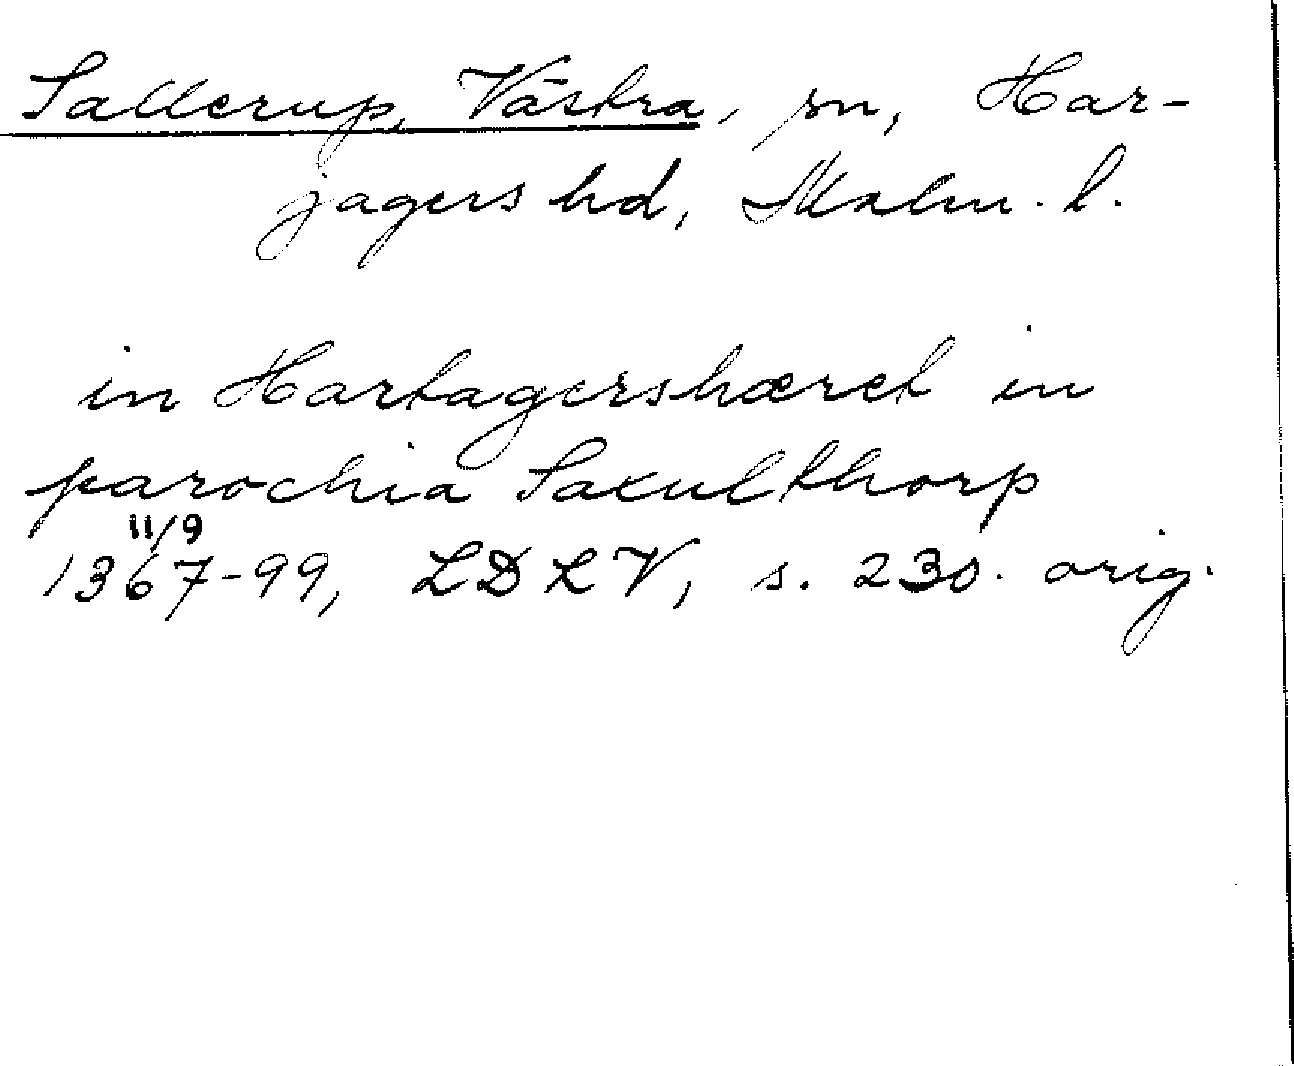 Sallerup, Västra, sn, Har-
jagers hd, Malm. l.
in Hartagershæret in
parochia Saxulthorp
11/9
1367-99, LDLV, s. 230. orig.